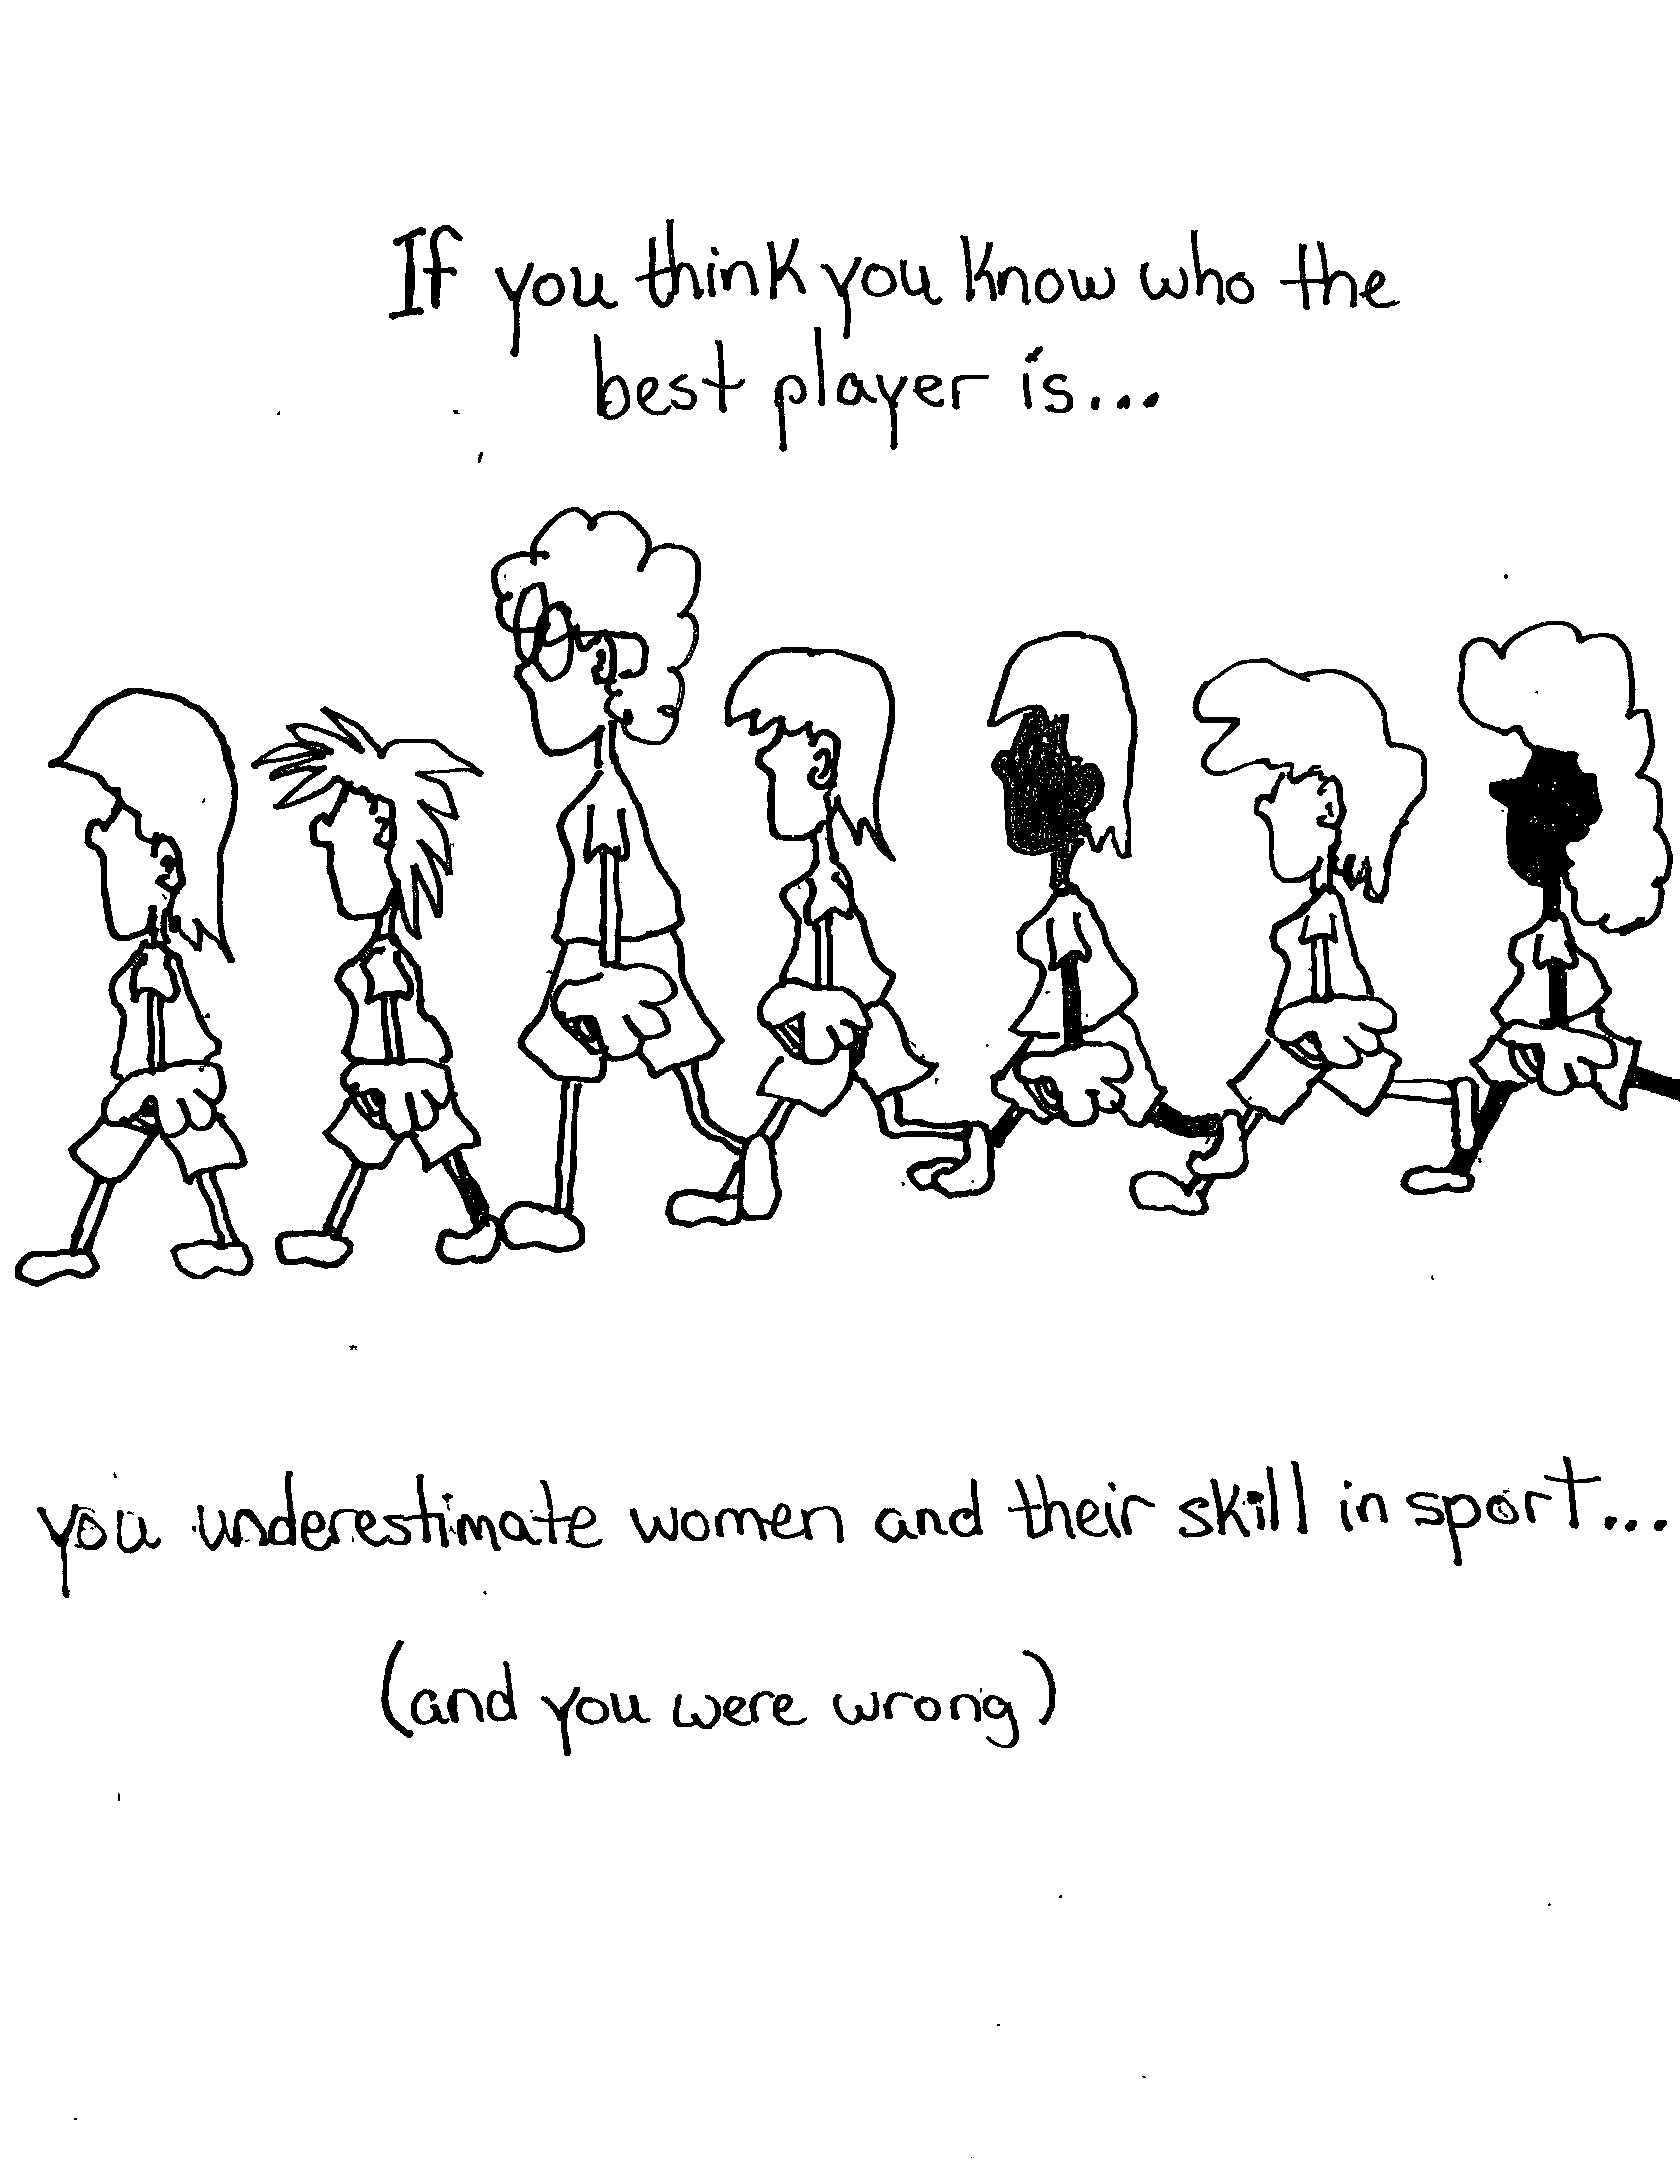 If you think you know who the
best player is...
you underestimate women and their skill in sport...
(and you were wrong)